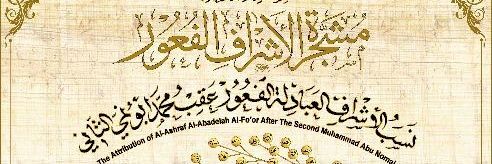 مشجرة الأشراف الفعور
نسب الأشراف العبادلة الفعور عقب محمد أبو نمي الثاني
The Attribution of Al-Ashraf Al-Abadelah Al-Fo'or After The Second Muhammad Abu Nomai